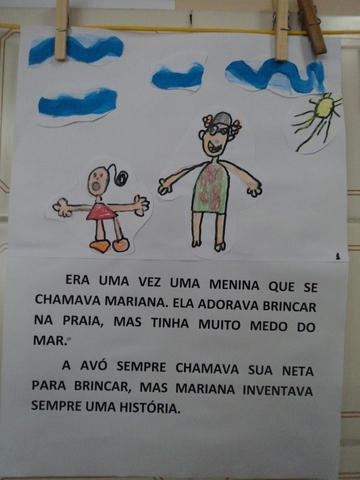 1
ERA UMA VEZ UMA MENINA QUE SE
CHAMAVA MARIANA. ELA ADORAVA BRINCAR
NA PRAIA, MAS TINHA MUITO MEDO DO
MAR.
A AVÓ SEMPRE CHAMAVA SUA NETA
PARA BRINCAR, MAS MARIANA INVENTAVA
SEMPRE UMA HISTÓRIA.